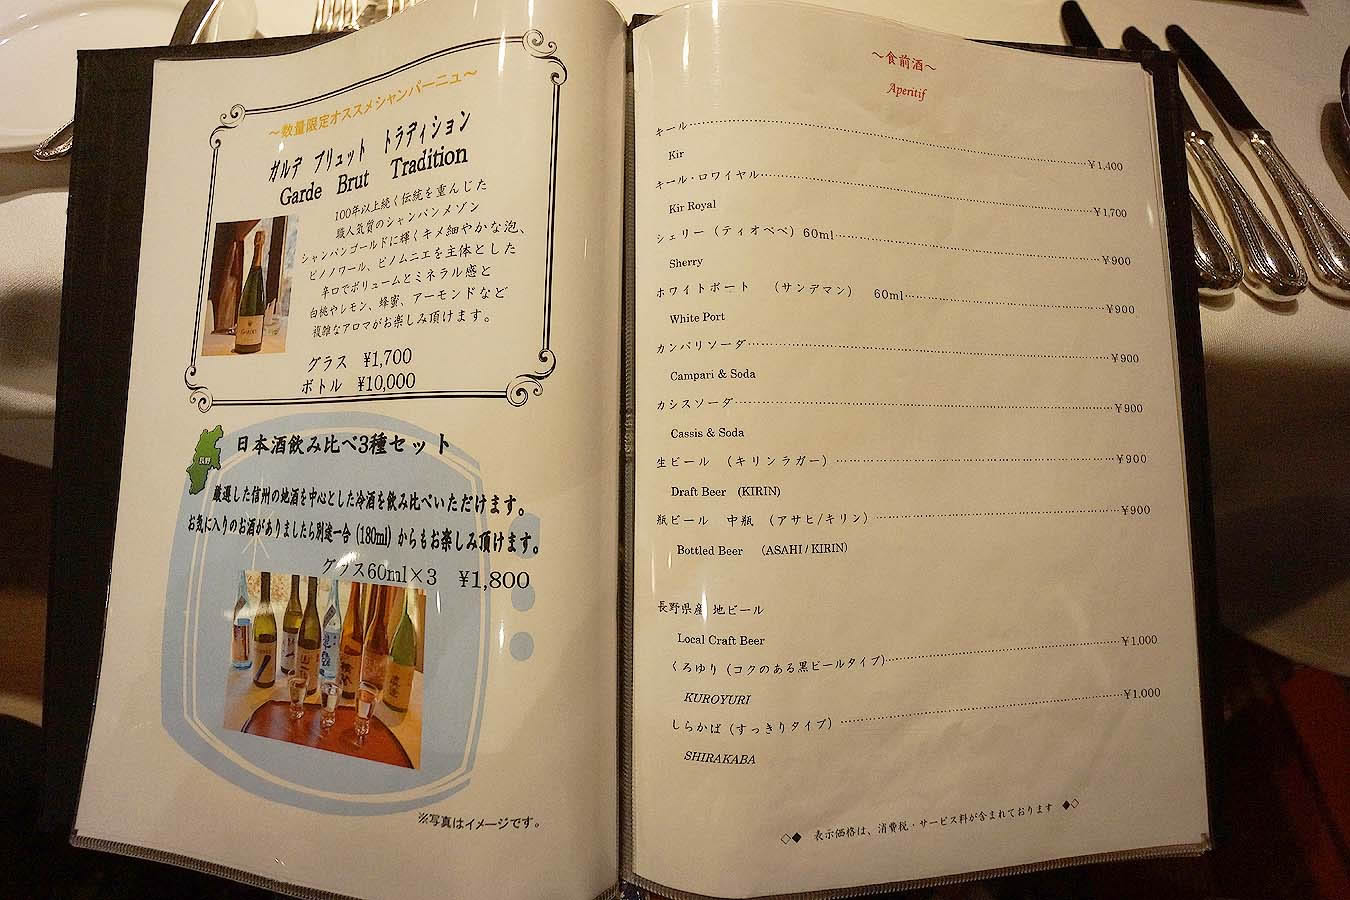 ～数量限定オススメシャンパーニュ～
ガルデ ブリュット トラディション
Garde Brut Tradition
100年以上続く伝統を重んじた
職人気質のシャンパンメゾン
シャンパンゴールドに輝くキメ細やかな泡、
ピノノワール、ピノムニエを主体とした
辛口でボリュームとミネラル感と
白桃やレモン、蜂蜜、アーモンドなど
複雑なアロマがお楽しみ頂けます。
グラス ¥1,700
ボトル ¥10,000
長野
日本酒飲み比べ3種セット
厳選した信州の地酒を中心とした冷酒を飲み比べいただけます。
お気に入りのお酒がありましたら別途一合（180ml）からもお楽しみ頂けます。
グラス60ml×3 ¥1,800
※写真はイメージです。
～食前酒～
Aperitif
キール ¥1,400
Kir
キール・ロワイヤル ¥1,700
Kir Royal
シェリー（ティオペペ）60ml ¥900
Sherry
ホワイトポート （サンデマン） 60ml ¥900
White Port
カンパリソーダ ¥900
Campari & Soda
カシスソーダ ¥900
Cassis & Soda
生ビール （キリンラガー） ¥900
Draft Beer (KIRIN)
瓶ビール 中瓶 （アサヒ/キリン） ¥900
Bottled Beer (ASAHI / KIRIN)
長野県産 地ビール
Local Craft Beer
くろゆり（コクのある黒ビールタイプ） ¥1,000
KUROYURI
しらかば（すっきりタイプ） ¥1,000
SHIRAKABA
◇◆ 表示価格は、消費税・サービス料が含まれております ◆◇